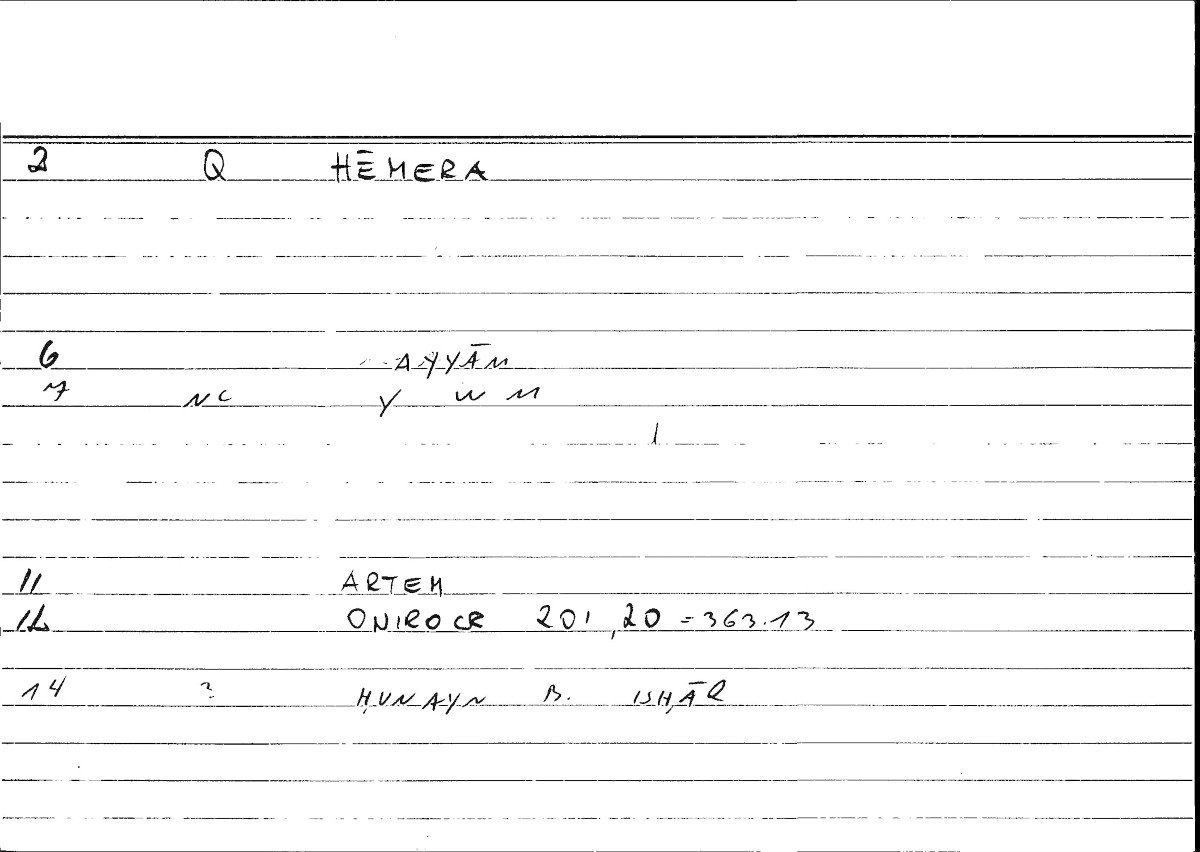 2 Q HĒMERA
6 AYYĀM
7 NC Y W M
11 ARTEM
12 ONIROCR 201,20 = 363.13
14 ? ḤUNAYN B. ISḤĀQ